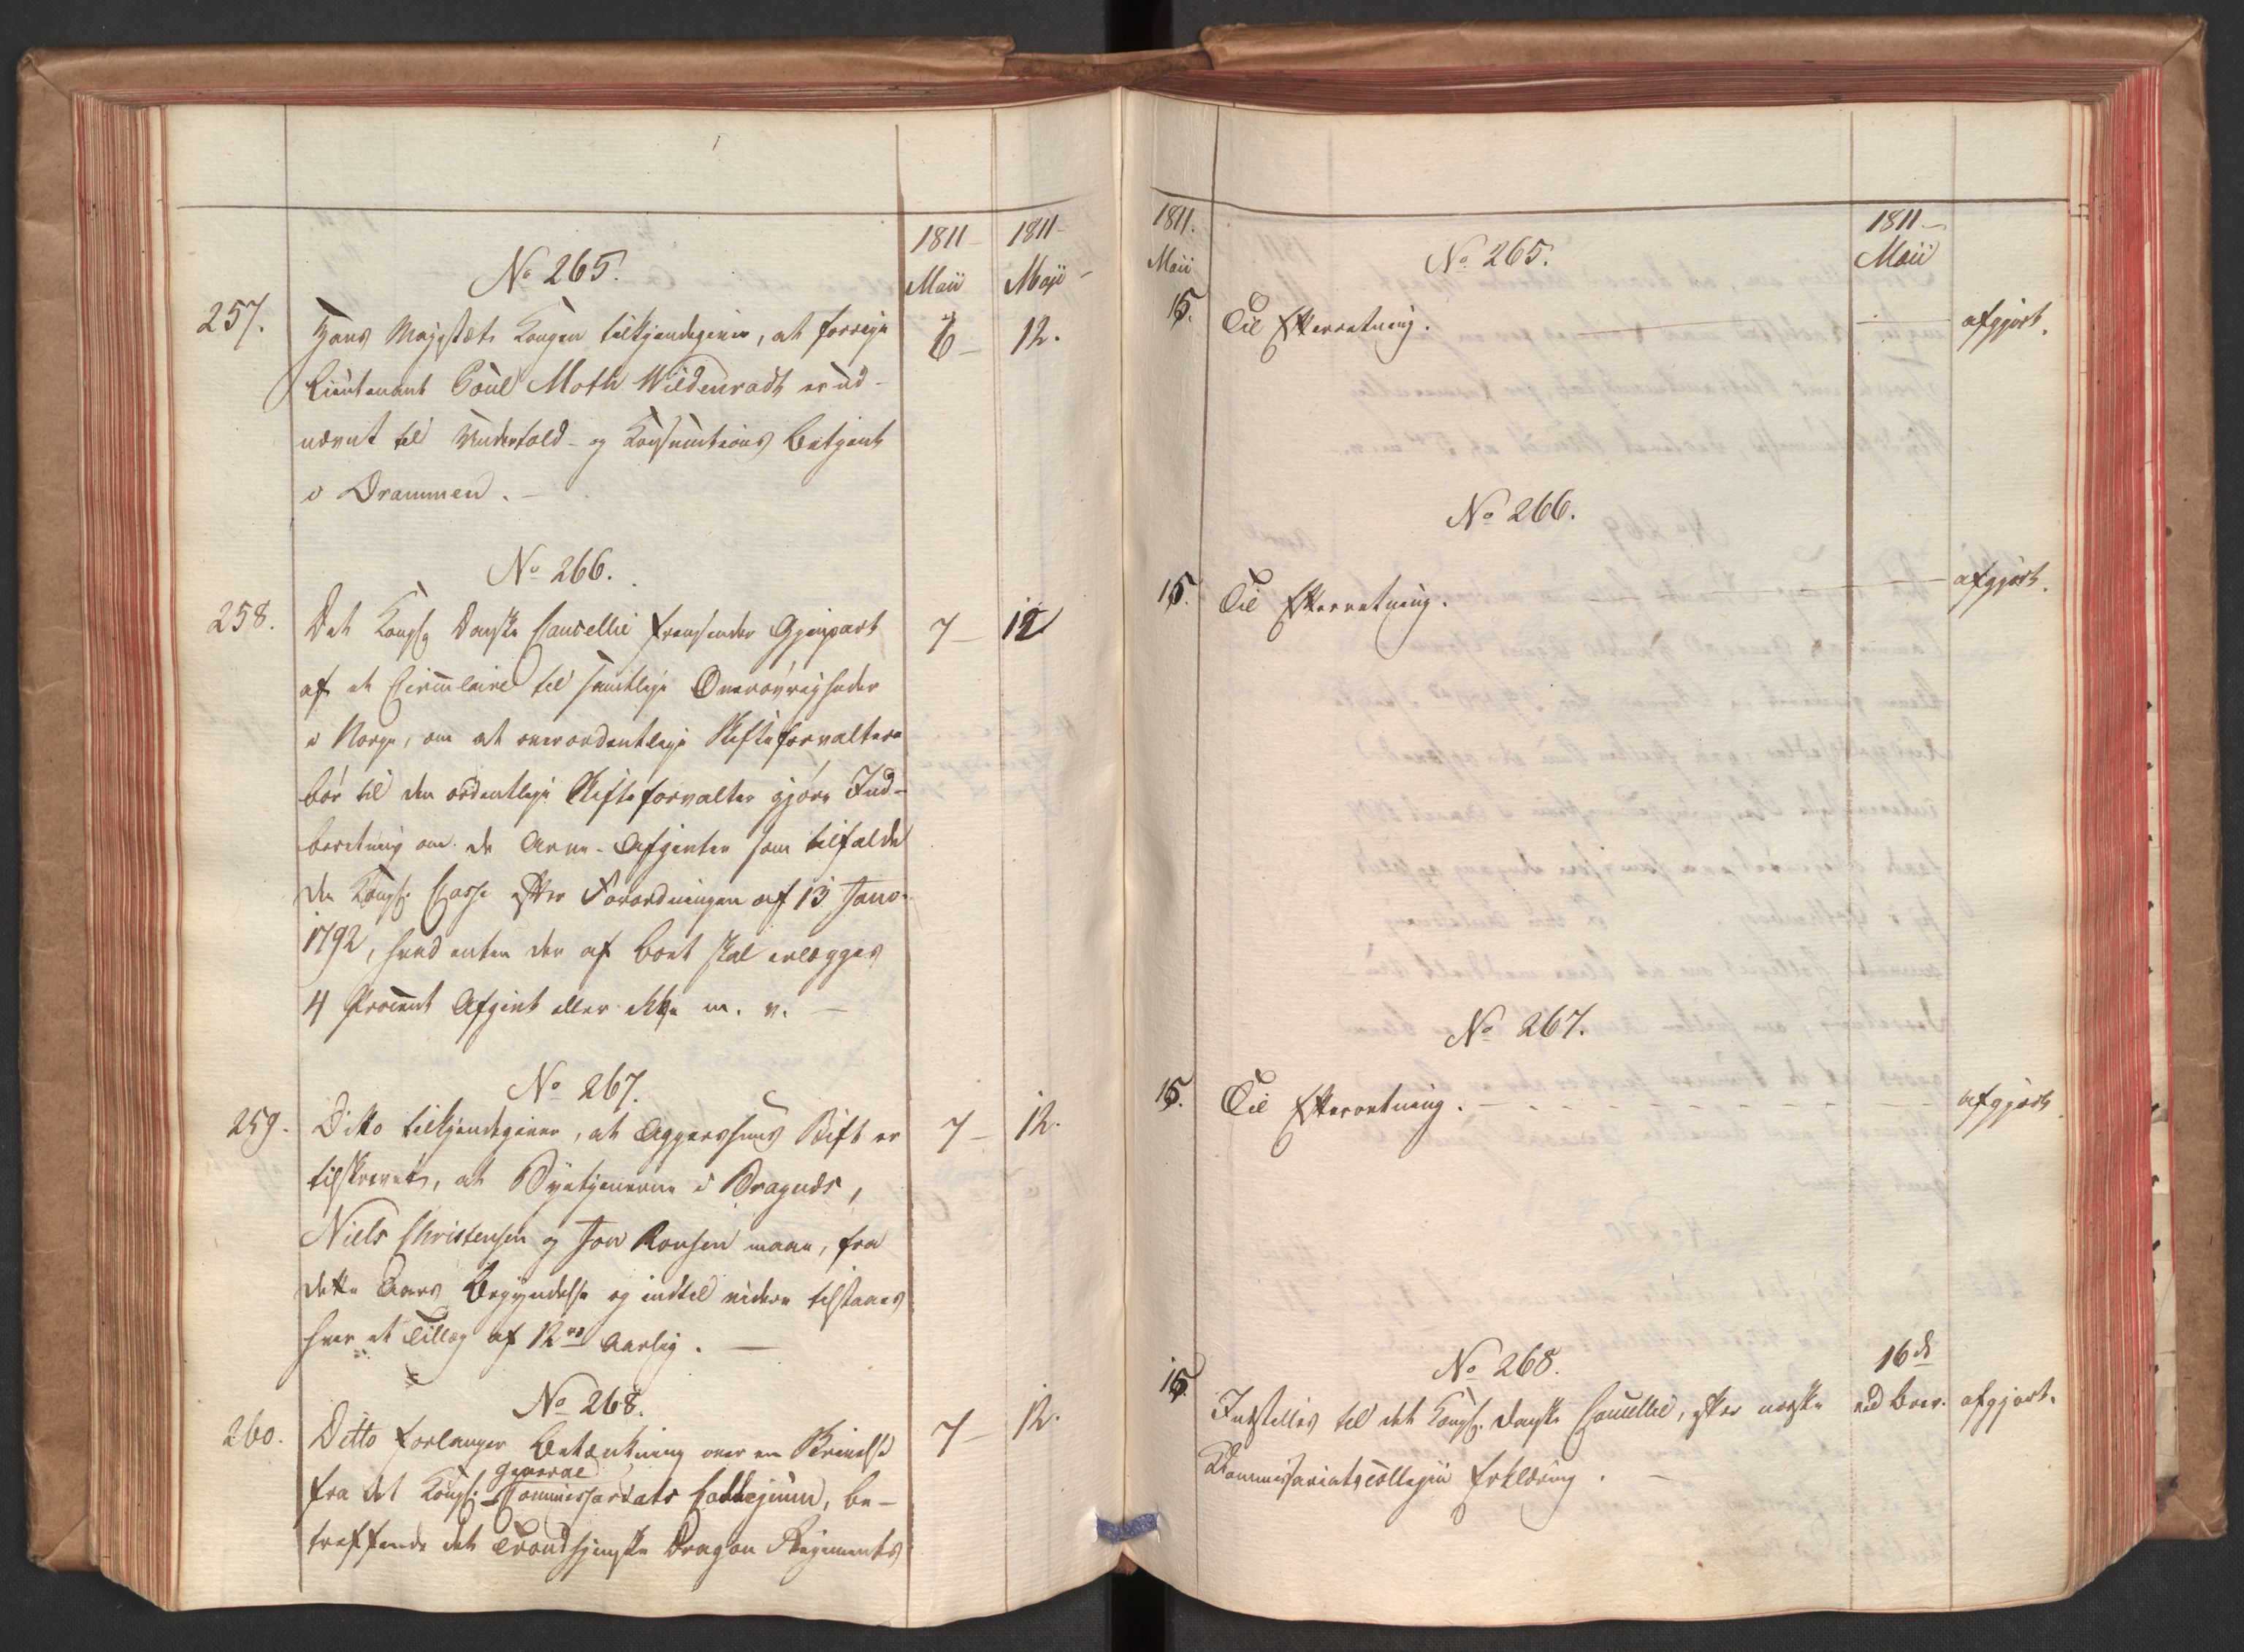 1811 1811
Maii Maji
No 265.
257. Hans Majestæt Kongen tilkjendegiver, at forrige 6 12.
Lieutenant Poul Moth Wildenradt er ud-
nævnt til Undertold- og Konsumtions Betjent
i Drammen.
No 266.
258. Det Kongel Danske Cancellie fremsender Gjenpart 7 12
af et Circulaire til samtlige Overøvrigheder
i Norge, om at overordentlige Skifteforvaltere
bør til den ordentlige Skifteforvalter gjøre Ind-
beretning om de Arve-Afgivter som tilfalde
den Kongel. Casse efter Forordningen af 13 Janr.
1792, hvad enten der af Boet skal erlægges
4 Procent Afgivt eller ikke m. v.
No 267.
259. Ditto tilkjendegiver, at Aggershuus Stift er 7 12.
tilskrevet, at Byetjenerne i Bragnæs,
Niels Christensen og Jon Ronsen maae, fra
dette Aars Begyndelse og indtil videre tilstaaes
hver et Tillæg af 12 rd aarlig.
No 268.
260. Ditto forlanger Betænkning over en Skrivelse 7 12.
general
fra det Kongel. Commissariats Collegium, be-
treffende det Trondhjemske Dragon Regiments
1811. 1811
Maii Maii
No 265.
15. Til Efterretning. afgjort.
No 266.
15. Til Efterretning. afgjort.
No 267.
15. Til Efterretning. afgjort
No 268. 16de
15 Indstilles til det Kongel. Danske Cancellie, efter norske ved Brev. afgjort.
Kommissariatscollegiu Erklæring.